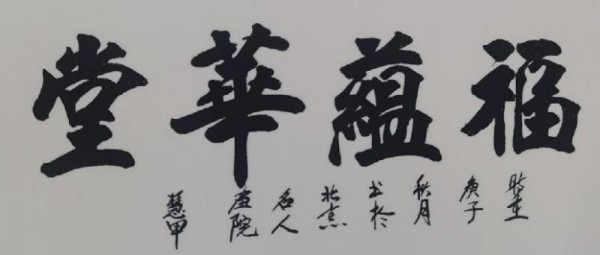 福蘊華堂
时在庚子秋月书於北京名人画院慧甲